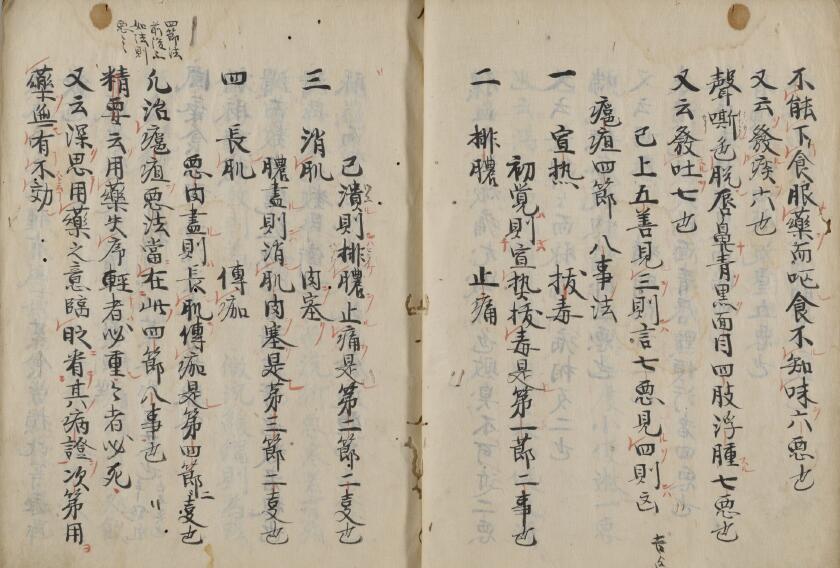 不能下食服藥而呕食不知味六悪也
又云發痎六也
聲嘶色脱唇鼻青黒面目四肢浮腫七悪也
又云發吐七也
已上五善見三則言七悪見四則凶
癰疽四節八事法
一 宣热 拔毒
初覚則宣热拔毒是第一節二事也
二 排膿 止痛
已潰則排膿止痛是第二節二㕝也
三 消肌 肉塞
膿盡則消肌肉塞是第三節二㕝也
四 長肌 傅痂
悪肉盡則長肌傅痂是第四節二㕝也
凢治癰疽悪法當在此四節八事也
精要云用藥失序軽者必重々者必死
又云深思用藥之意臨眂看其病證次第用
藥無有不効
四節法
前後不
如法則
悪之